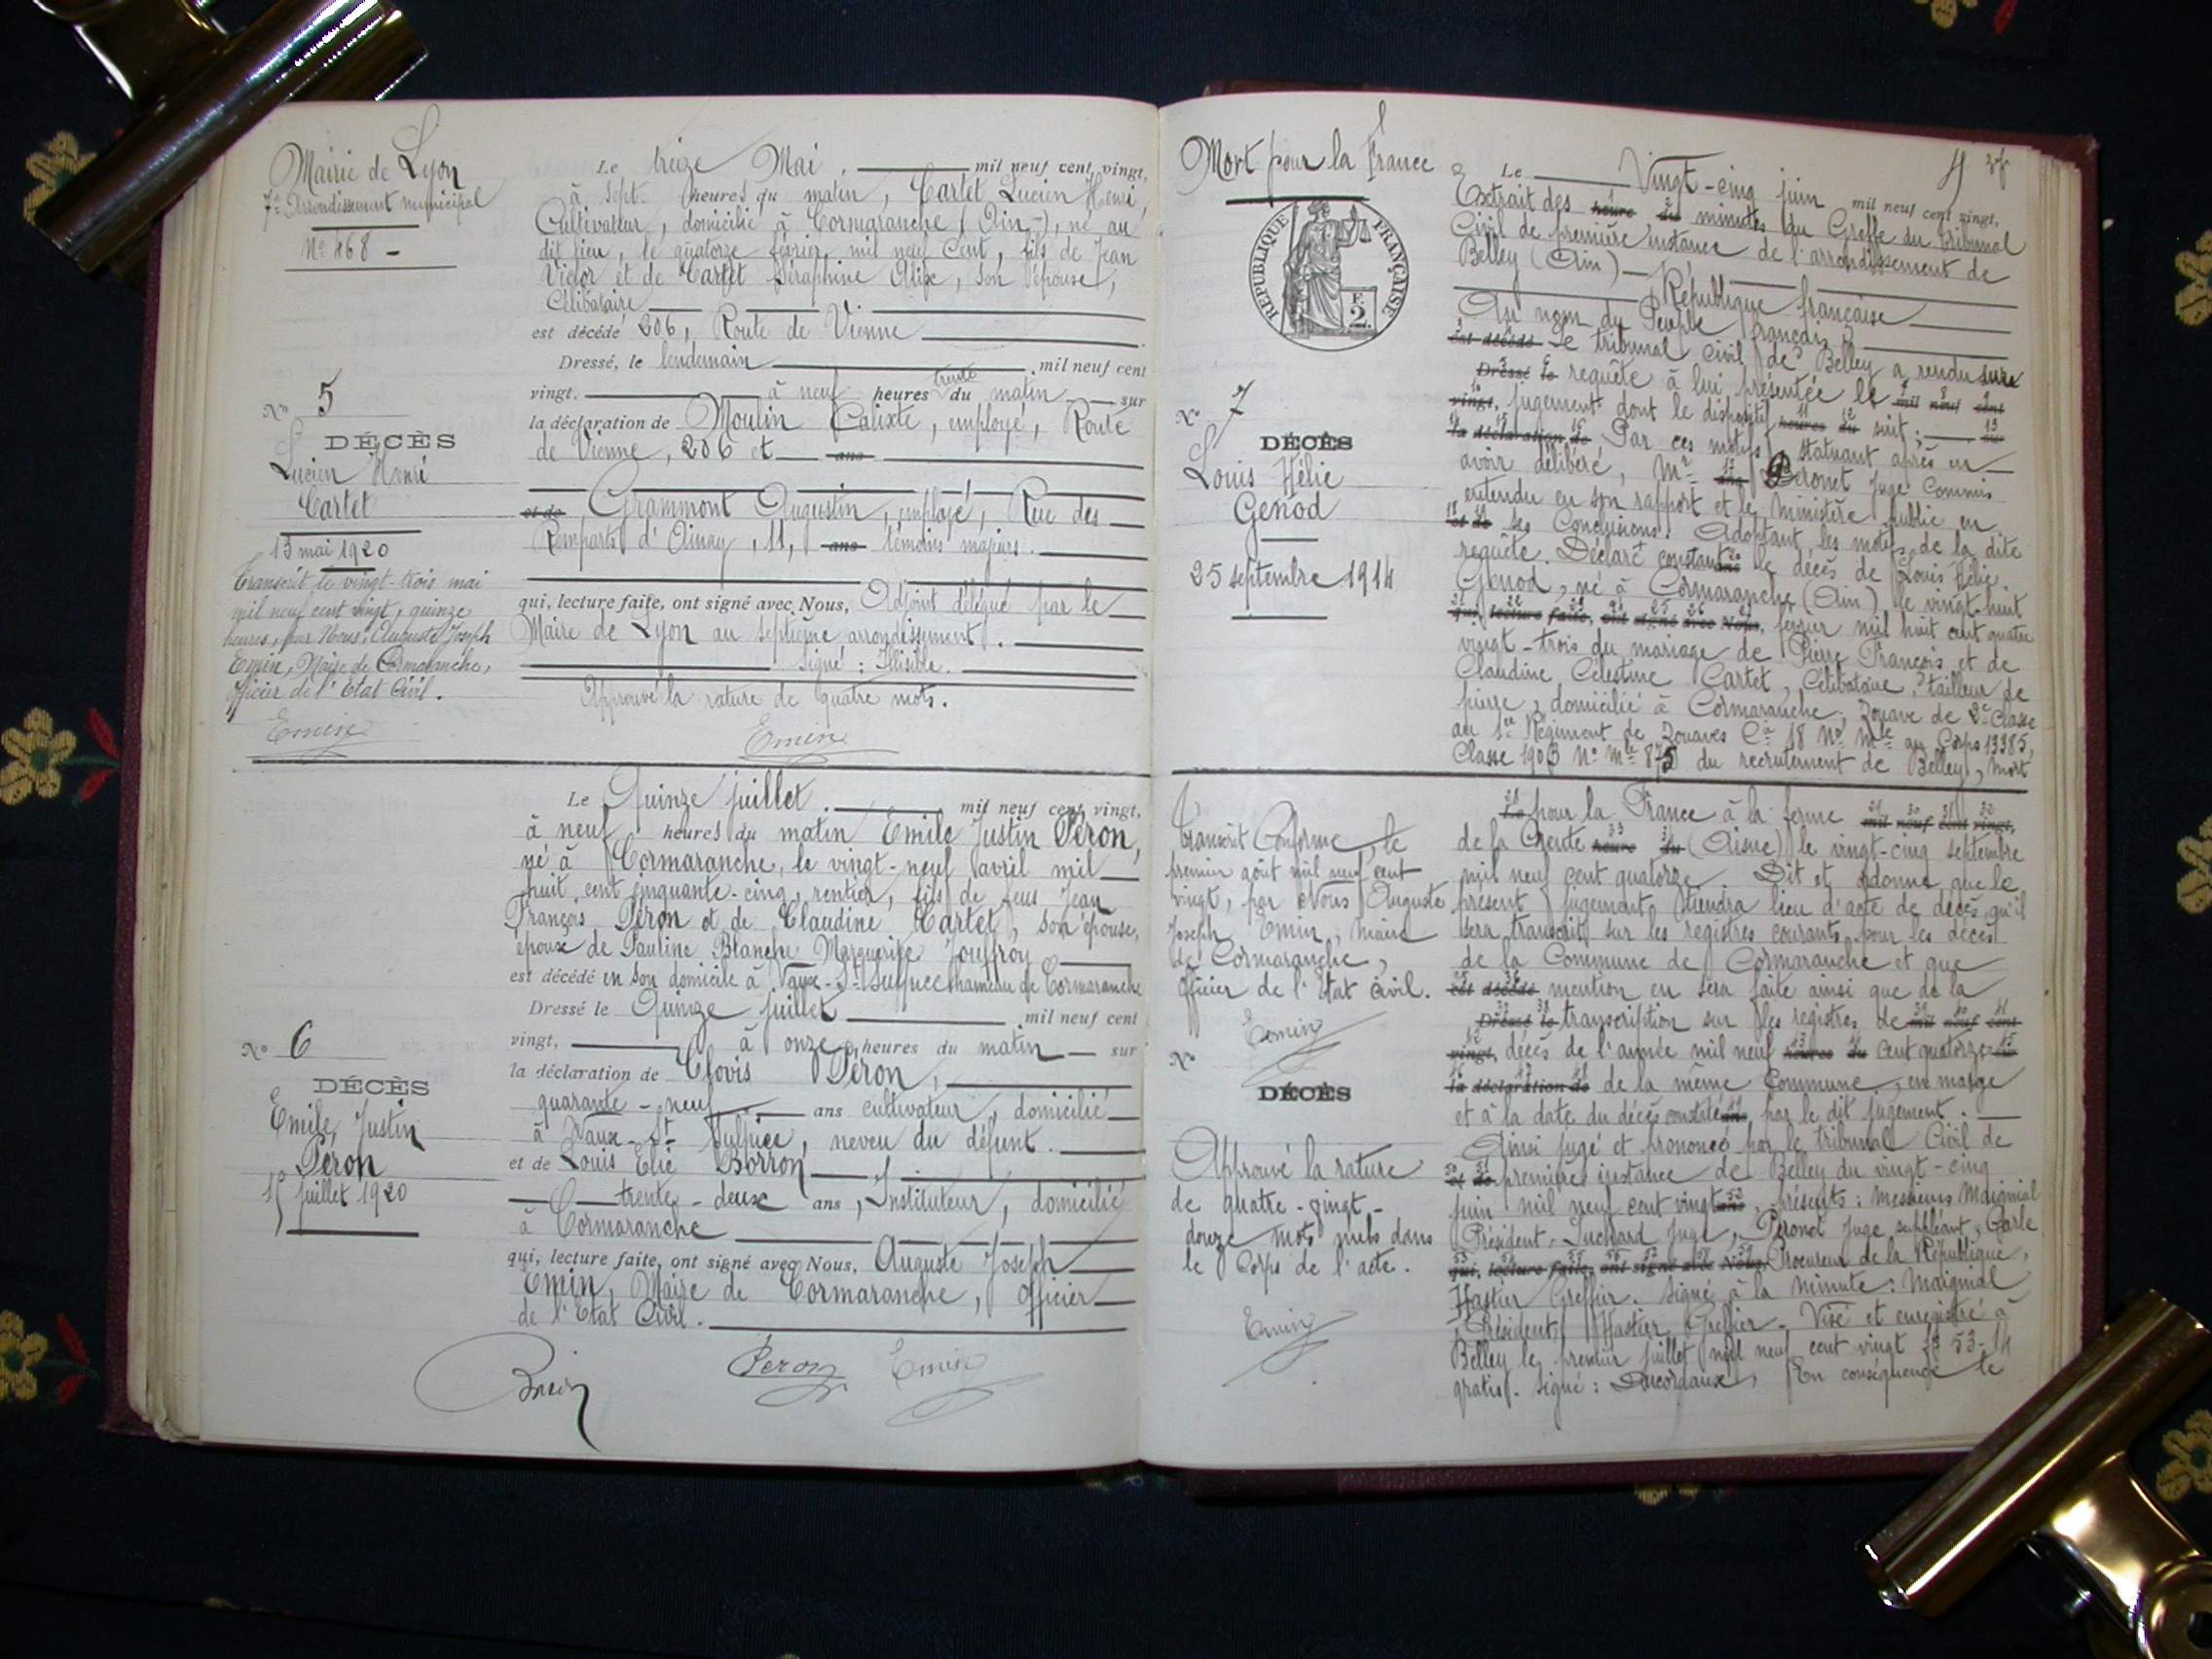 Mairie de Lyon
7e Arrondissement municipal
No 468 -
Le treize Mai. mil neuf cent vingt,
à sept heures du matin, Cartet Lucien Henri,
Cultivateur, domicilié à Cormaranche (Ain), né au
dit lieu, le quatorze février mil neuf cent, fils de Jean
Victor et de Cartet Séraphine Alix, son épouse,
Célibataire
est décédé 206, Route de Vienne
Dressé, le lendemain mil neuf cent
vingt. à neuf heures trente du matin sur
la déclaration de Moulin Calixte, employé, Route
de Vienne, 206 et ans
et de Grammont Augustin, employé, Rue des
Remparts d'Ainay, 11, ans témoins majurs.
qui, lecture faite, ont signé avec Nous, Adjoint délégué par le
Maire de Lyon au septième arrondissement.
Signé : Illisible.
Approuvé la rature de quatre mots.
Emin
No 5
DÉCÈS
Lucien Henri
Cartet
13 mai 1920
Transcrit le vingt-trois mai
mil neuf cent vingt, quinze
heures, par Nous, Auguste Joseph
Emin, Maire de Cormaranche,
Officier de l'Etat Civil.
Emin
Le Quinze juillet. mil neuf cent vingt,
à neuf heures du matin Emile Justin Péron,
né à Cormaranche, le vingt-neuf avril mil
huit cent cinquante-cinq, rentier, fils de feus Jean
François Péron et de Claudine Cartet, son épouse,
époux de Pauline Blanche Marguerite Jouffroy
est décédé en son domicile à Vaux-St-Sulpice hameau de Cormaranche
Dressé le Quinze juillet mil neuf cent
vingt, à onze heures du matin sur
la déclaration de Clovis Péron,
quarante-neuf ans cultivateur, domicilié
à Vaux-St-Sulpice, neveu du défunt.
et de Louis Elie Borron
trente-deux ans, Instituteur, domicilié
à Cormaranche
qui, lecture faite, ont signé avec Nous, Auguste Joseph
Emin, Maire de Cormaranche, Officier
de l'Etat Civil.
Péron Emin
No 6
DÉCÈS
Emile, Justin
Péron
15 juillet 1920
Mort pour la France
RÉPUBLIQUE FRANÇAISE
F. 2.
No 7
DÉCÈS
Louis Hélie
Genod
25 septembre 1914
4
Le Vingt-cinq juin mil neuf cent vingt,
Extrait des heure du minutes du Greffe du tribunal
Civil de première instance de l'arrondissement de
Belley (Ain)
République française
Au nom du Peuple français
est décédé Le tribunal Civil de Belley a rendu sur
Dressé le requête à lui présentée le mil neuf cent
vingt, jugement dont le dispositif heures du suit : sur
la déclaration de Par ces motifs, statuant après en
avoir délibéré, Mr ans Peronet Juge Commis
entendu en son rapport et le Ministère public en
et de ses Conclusions. Adoptant les motifs de la dite
requête. Déclare constant ans le décès de Louis Hélie
Genod, né à Cormaranche (Ain) le vingt-huit
qui, lecture faite, ont signé avec Nous, février mil huit cent quatre
vingt-trois du mariage de Pierre François et de
Claudine Célestine Cartet, Célibataire, tailleur de
pierre, domicilié à Cormaranche, Zouave de 2e Classe
au 1er Régiment de Zouaves Cie 18 No Mle au Corps 13385,
Classe 1903 No Mle 875 du recrutement de Belley, mort
Le pour la France à la ferme mil neuf cent vingt,
de la Creute heure du (Aisne) le vingt-cinq septembre
mil neuf cent quatorze. Dit et ordonne que le
présent jugement tiendra lieu d'acte de décès, qu'il
sera transcrit sur les registres courants pour les décès
de la Commune de Cormaranche et que
est décédé mention en sera faite ainsi que de la
Dressé le transcription sur les registres de mil neuf cent
vingt, décès de l'année mil neuf heures du cent quatorze sur
la déclaration de de la même Commune, en marge
et à la date du décès constaté ans par le dit jugement.
Ainsi jugé et prononcé par le tribunal Civil de
et de première instance de Belley du vingt-cinq
juin mil neuf cent vingt ans, présents : Messieurs Maignial
Président, Juge, Peronet Juge suppléant,
qui, lecture faite, ont signé avec Nous, Procureur de la République,
Hastier Greffier. Signé à la minute : Maignial
Président, Hastier, Greffier. Visé et enregistré à
Belley le premier juillet mil neuf cent vingt
gratis. Signé : En conséquence le
Transcrit Conforme, le
premier août mil neuf cent
vingt, par Nous Auguste
Joseph Emin, Maire
de Cormaranche,
Officier de l'Etat Civil.
Emin
No
DÉCÈS
Approuvé la rature
de quatre-vingt-
douze mots nuls dans
le Corps de l'acte.
Emin